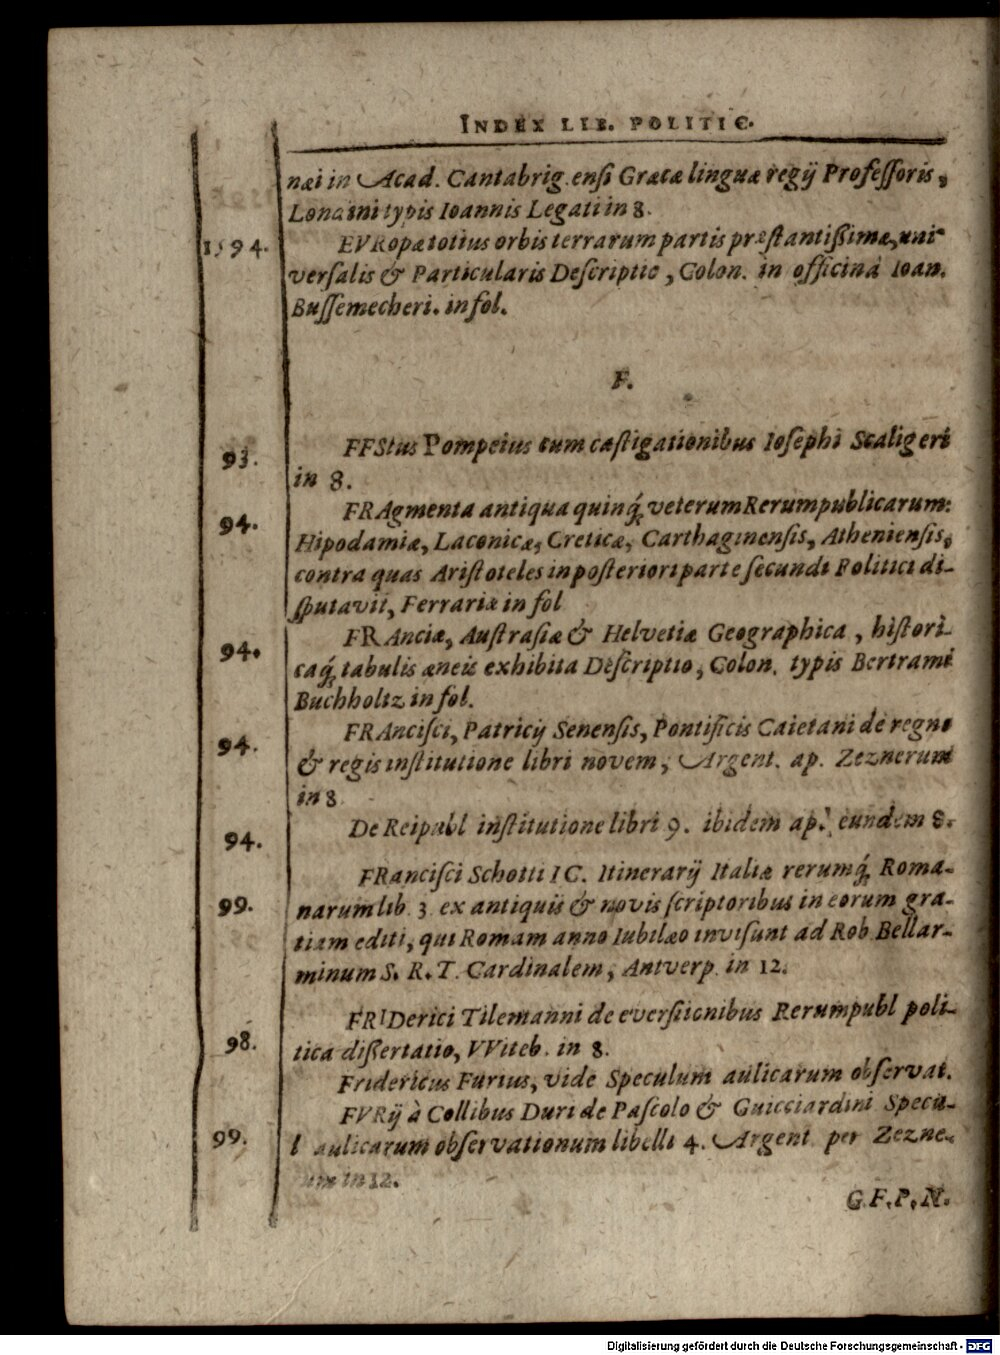 INDEX LIB. POLITIC.
næi in Acad. Cantabrig. ensi Græcæ linguæ regij Professoris,
Londini typis Ioannis Legati in 8.
1594. EVRopæ totius orbis terrarum partis præstantissimæ, uni
versalis & Particularis Descriptio, Colon. in officina Ioan.
Bussemecheri. in fol.
F.
93. FFStus Pompeius cum castigationibus Iosephi Scaligeri
in 8.
94. FRAgmenta antiqua quinq́; veterum Rerumpublicarum:
Hipodamiæ, Laconicæ, Creticæ, Carthaginensis, Atheniensis,
contra quas Aristoteles in posteriori parte secundi Politici di-
sputavit, Ferrariæ in fol
94. FRAnciæ, Austrasiæ & Helvetiæ Geographica, histori-
caq́; tabulis æneis exhibita Descriptio, Colon. typis Bertrami
Buchholtz in fol.
94. FRAncisci, Patricij Senensis, Pontificis Caietani de regno
& regis institutione libri novem, Argent. ap. Zeznerum
in 8
94. De Reipubl institutione libri 9. ibidem ap. eundem 8.
FRancisci Schotti IC. Itinerarij Italiæ rerumq́; Roma-
99. narum lib. 3 ex antiquis & novis scriptoribus in eorum gra-
tiam editi, qui Romam anno Iubilæo invisunt ad Rob. Bellar-
minum S. R. T. Cardinalem, Antverp. in 12.
FRIDerici Tilemanni de eversiionibus Rerumpubl poli-
98. tica dissertatio, VViteb. in 8.
Fridericus Furius, vide Speculum aulicarum observat.
FVRij à Collibus Duri de Pascolo & Guicciardini Specu-
99. l aulicarum observationum libelli 4. Argent per Zezne-
um in 12.
G. F. P. N.
Digitalisierung gefördert durch die Deutsche Forschungsgemeinschaft - DFG